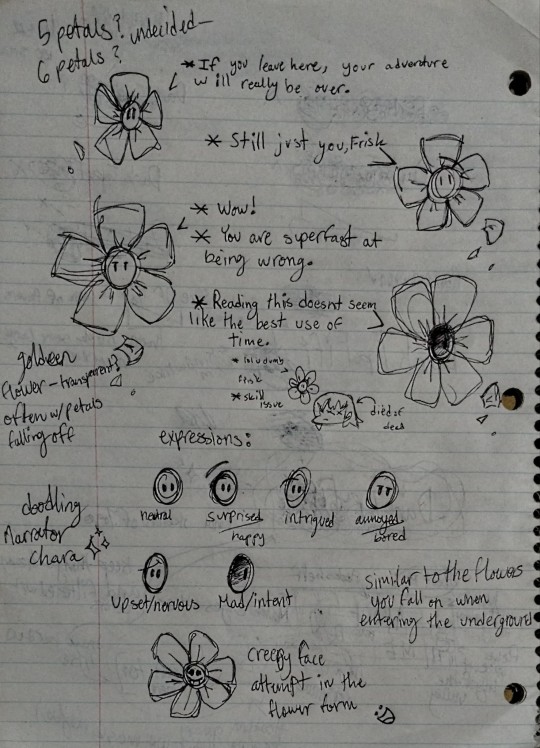 5 petals? undecided—
6 petals?
* If you leave here, your adventure
will really be over.
* Still just you, Frisk
* Wow!
* You are superfast at
being wrong.
* Reading this doesnt seem
like the best use of
time.
* lol u dumb
frisk
* skill
issue
died of
dead
goldeen
flower - transparent?
often w/ petals
falling off
expressions:
neutral
surprised
happy
intrigued
annoyed
bored
doodling
Narrator
Chara
upset/nervous
Mad/intent
similar to the flowers
you fall on when
entering the underground
creepy face
attempt in the
flower form